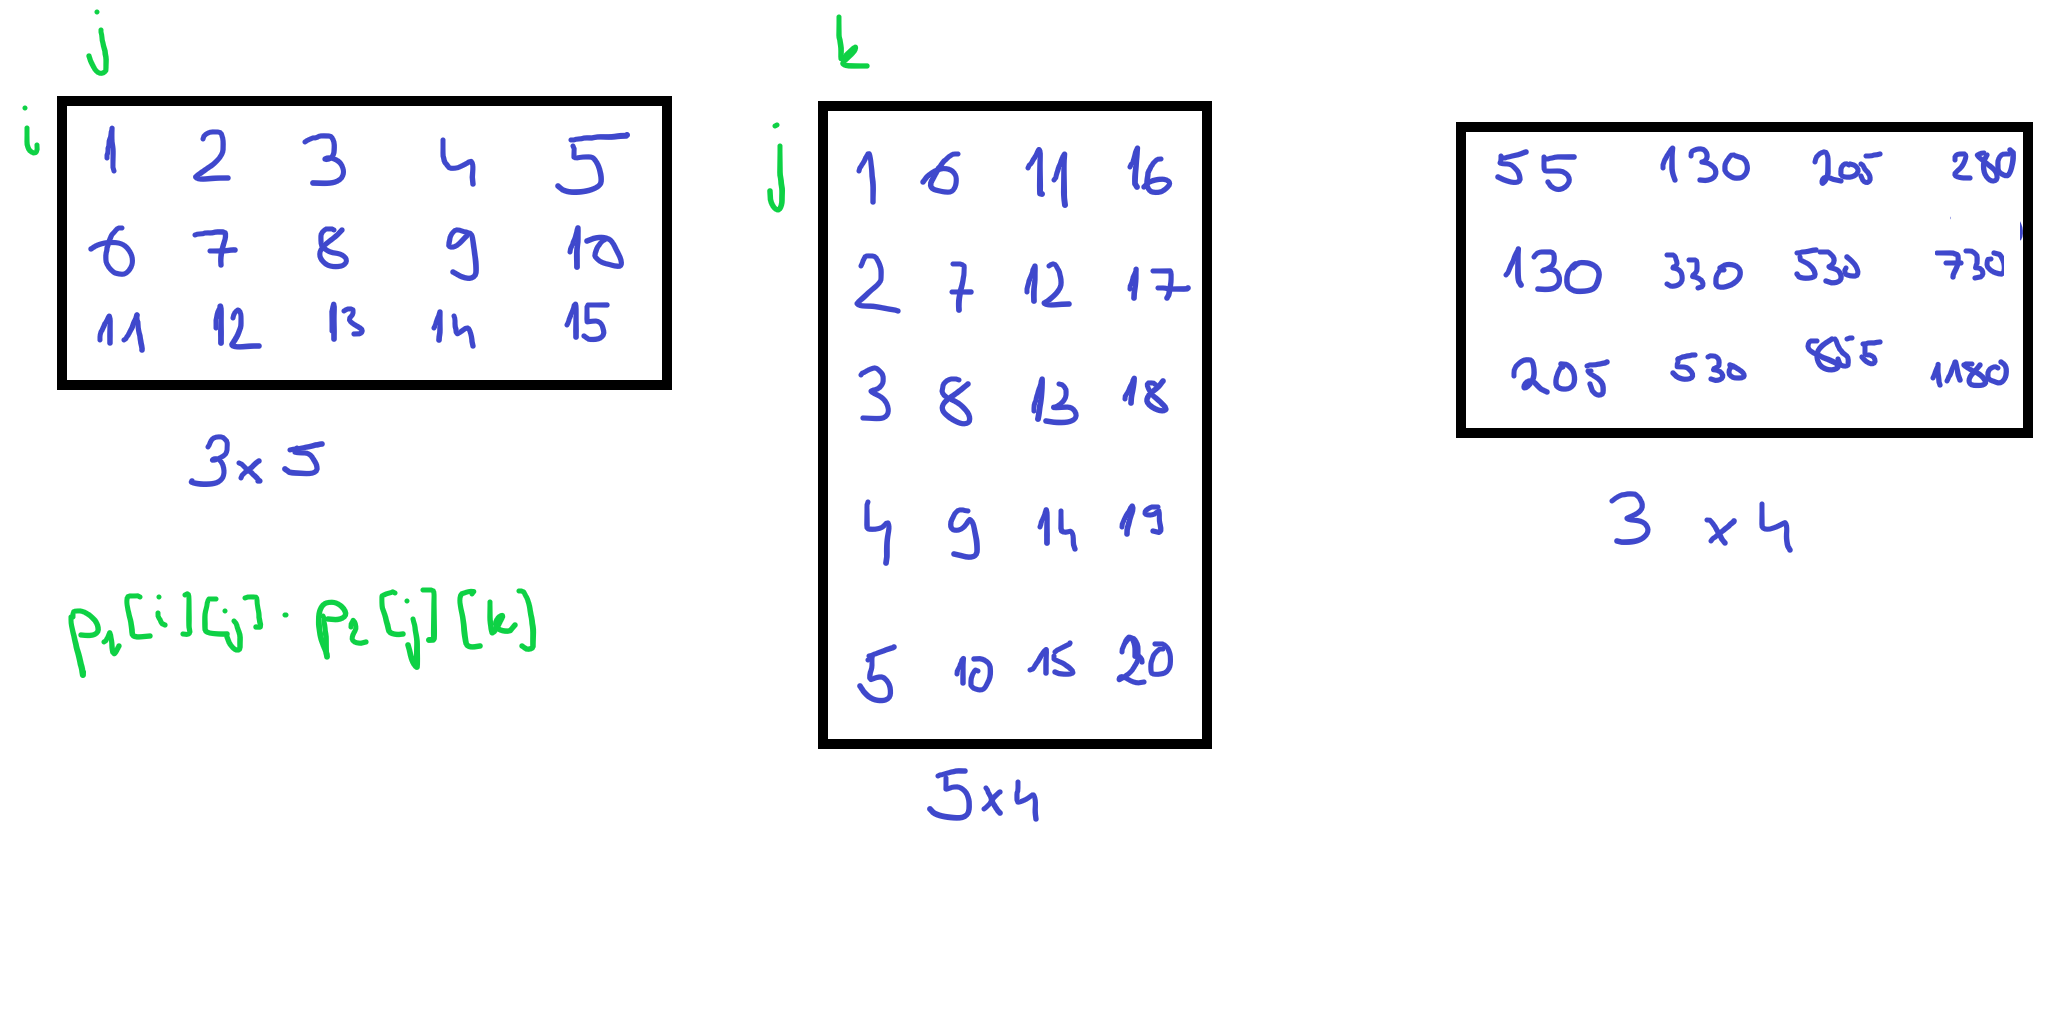 j
i
1 2 3 4 5
6 7 8 9 10
11 12 13 14 15
3 x 5
p1[i][j] · p2[j][k]
k
j
1 6 11 16
2 7 12 17
3 8 13 18
4 9 14 19
5 10 15 20
5 x 4
55 130 205 280
130 330 530 730
205 530 855 1180
3 x 4